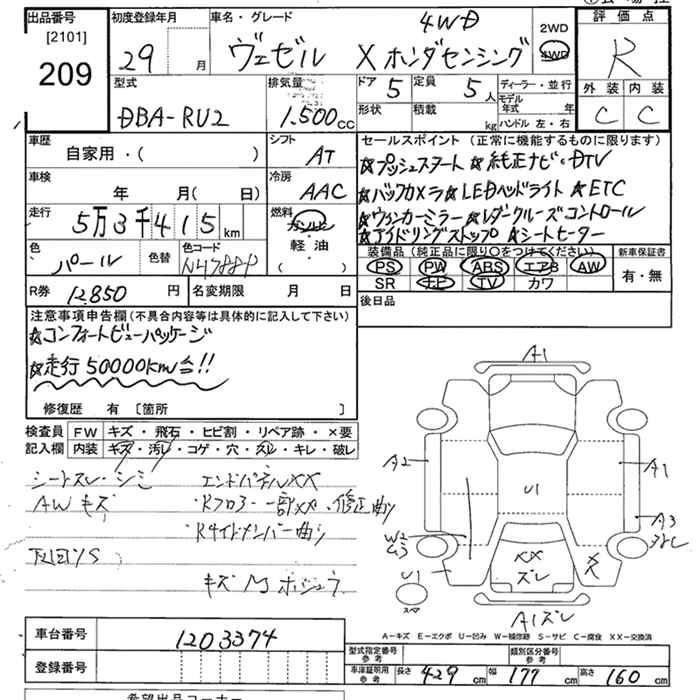 出品番号
[2101]
209
初度登録年月
29 月
車名・グレード
4WD
ヴェゼル X ホンダセンシング
2WD
4WD
評価点
R
外装 内装
C C
型式
DBA-RU2
排気量
1.500cc
ドア 5
定員 5人
形状
積載 kg
ディーラー・並行
モデル年式 年
ハンドル 左・右
車歴
自家用・( )
シフト
AT
車検
年 月( 日)
冷房
AAC
走行
5万3千415km
燃料
ガソリン
軽油
( )
色
パール
色替
色コード
NH788P
R券 12,850円
名変期限 月 日
セールスポイント(正常に機能するものに限ります)
☆プッシュスタート ☆純正ナビ・DTV
☆バックカメラ ☆LEDヘッドライト ☆ETC
☆ウィンカーミラー ☆レーダークルーズコントロール
☆アイドリングストップ ☆シートヒーター
装備品(純正品に限り○をつけてください)
PS PW ABS エアB AW
SR ナビ TV カワ
新車保証書
有・無
後日品
注意事項申告欄(不具合内容等は具体的に記入して下さい)
☆コンフォートビューパッケージ
☆走行50000km台!!
修復歴 有 [箇所 ]
検査員記入欄
FW キズ・飛石・ヒビ割・リペア跡・×要
内装 キズ・汚レ・コゲ・穴・スレ・キレ・破レ
シートスレ・シミ
AWキズ
エンドパネルXX
・Rフロアー一部XX・修正曲り
・Rサイドメンバー曲り
キズ
A1
A2
A1
U1
A3
W2
U3
U1
XX
ズレ
X
R
スペア
A1ズレ
A-キズ E-エクボ U-凹み W-補修跡 S-サビ C-腐食 XX-交換済
車台番号 1203374
登録番号
型式指定番号 参考
類別区分番号 参考
車庫証明用 参考
長さ 429cm 幅 177cm 高さ 160cm
希望出品コーナー